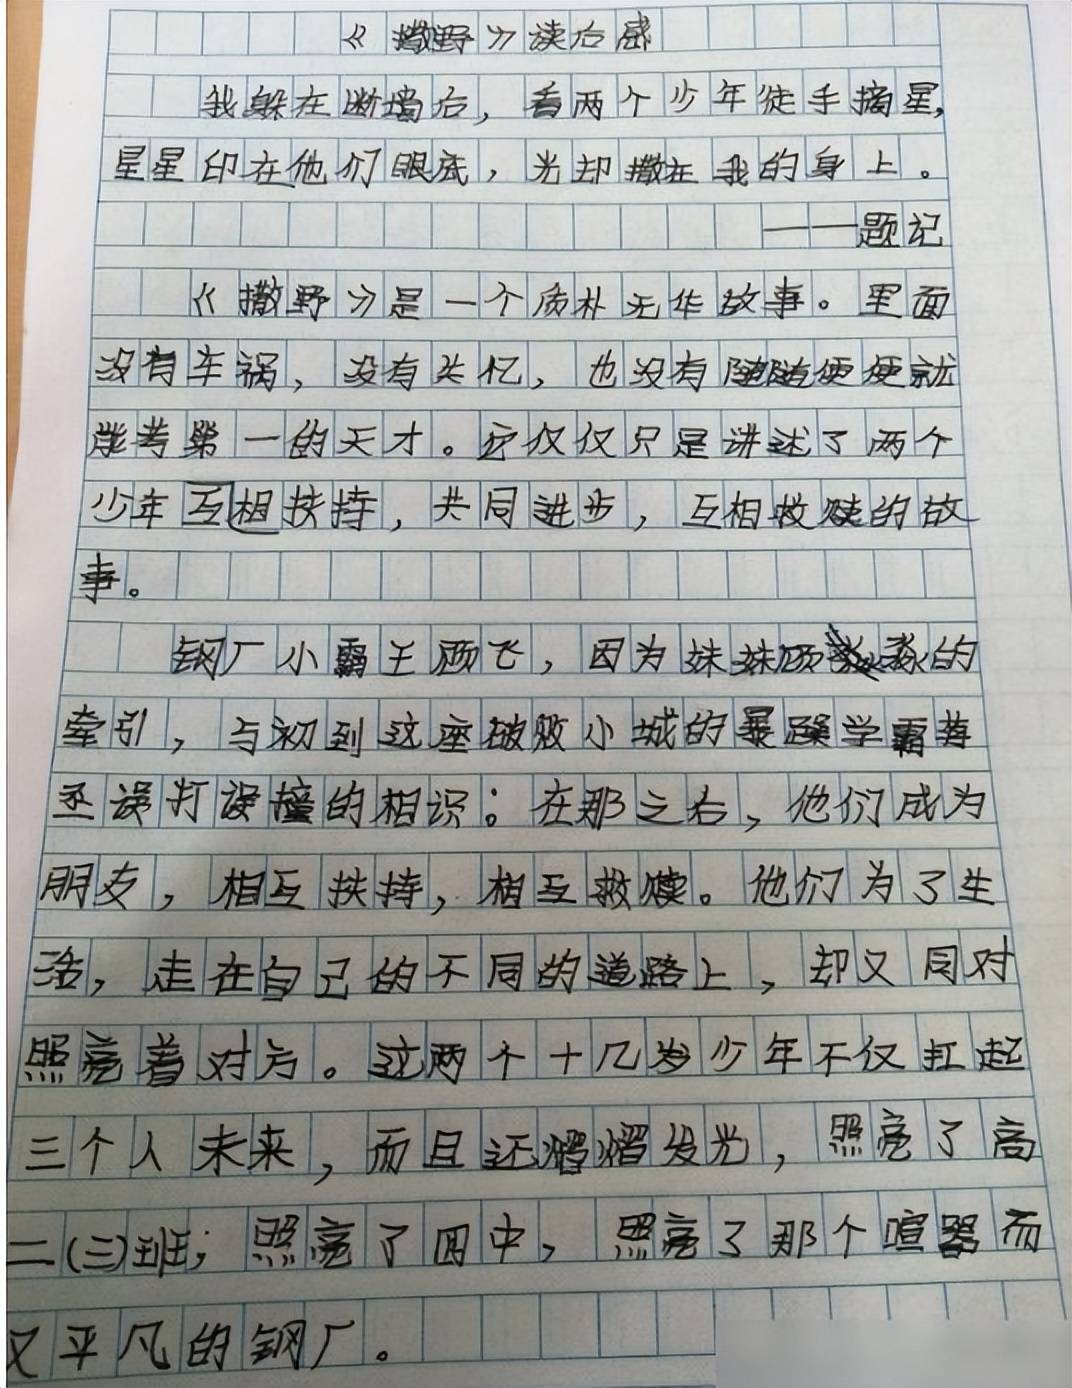 《撒野》读后感
我躲在断墙后，看两个少年徒手摘星，
星星印在他们眼底，光却撒在我的身上。
——题记
《撒野》是一个质朴无华故事。里面
没有车祸，没有失忆，也没有随随便便就
能考第一的天才。它仅仅只是讲述了两个
少年互相扶持，共同进步，互相救赎的故
事。
钢厂小霸王顾飞，因为妹妹顾淼的
牵引，与初到这座破败小城的暴躁学霸蒋
丞误打误撞的相识：在那之后，他们成为
朋友，相互扶持，相互救赎。他们为了生
活，走在自己的不同的道路上，却又同对
照亮着对方。这两个十几岁少年不仅扛起
三个人未来，而且还熠熠发光，照亮了高
二(三)班；照亮了四中，照亮了那个喧嚣而
又平凡的钢厂。